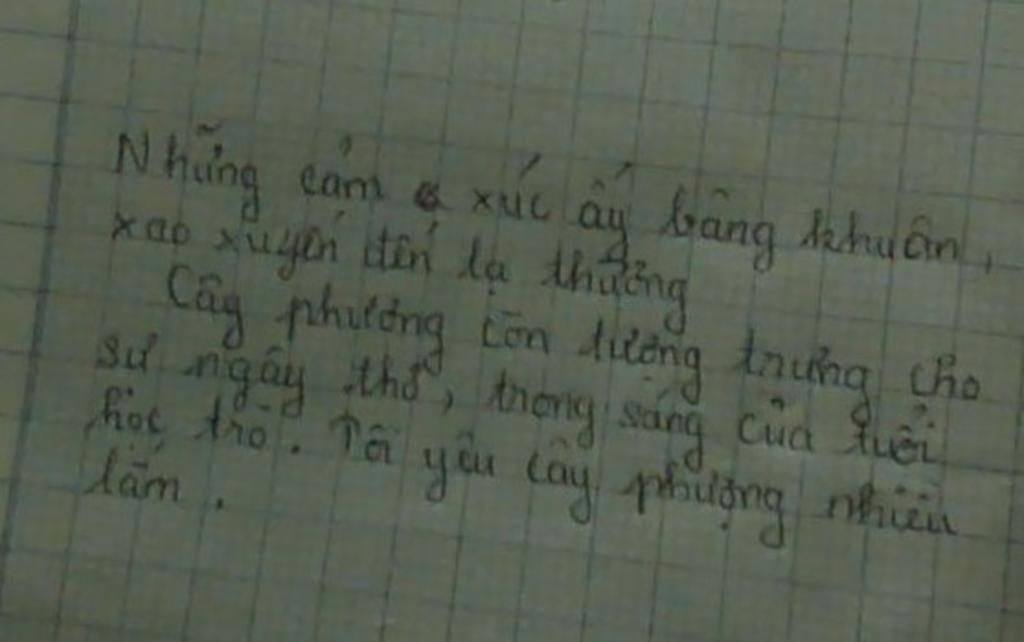 Những cảm xúc ấy bâng khuân,
xao xuyến đến lạ thường
Cây phượng còn tượng trưng cho
sự ngây thơ, trong sáng của tuổi
học trò. Tôi yêu cây phượng nhiều
lắm.